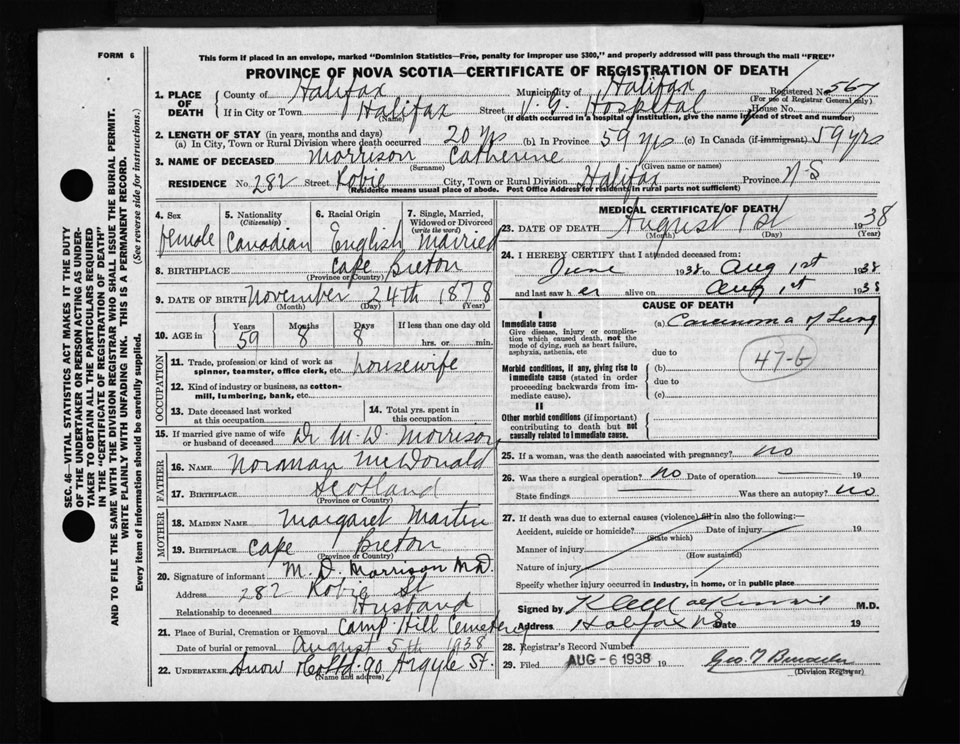 FORM 6
This form if placed in an envelope, marked "Dominion Statistics—Free, penalty for improper use $300," and properly addressed will pass through the mail "FREE"
PROVINCE OF NOVA SCOTIA—CERTIFICATE OF REGISTRATION OF DEATH
1. PLACE OF DEATH
County of Halifax Municipality of Halifax Registered No. 567
(For use of Registrar General only)
If in City or Town Halifax Street V. G. Hospital House No.
(Name) (If death occurred in a hospital or institution, give the name instead of street and number)
2. LENGTH OF STAY (in years, months and days)
(a) In City, Town or Rural Division where death occurred 20 yrs (b) In Province 59 yrs (c) In Canada (if immigrant) 59 yrs
3. NAME OF DECEASED Morrison Catherine
(Surname) (Given name or names)
RESIDENCE No. 282 Street Robie City, Town or Rural Division Halifax Province N-S
(Residence means usual place of abode. Post Office Address for residents in rural parts not sufficient)
4. Sex
female
5. Nationality (Citizenship)
Canadian
6. Racial Origin
English
7. Single, Married, Widowed or Divorced (write the word)
Married
8. BIRTHPLACE Cape Breton
(Province or Country)
9. DATE OF BIRTH November 24th 1878
(Month) (Day) (Year)
10. AGE in Years Months Days If less than one day old
59 8 8 hrs. or min.
OCCUPATION
11. Trade, profession or kind of work as spinner, teamster, office clerk, etc. housewife
12. Kind of industry or business, as cotton-mill, lumbering, bank, etc.
13. Date deceased last worked at this occupation
14. Total yrs. spent in this occupation
15. If married give name of wife or husband of deceased Dr M. D. Morrison
FATHER
16. NAME Norman McDonald
17. BIRTHPLACE Scotland
(Province or Country)
MOTHER
18. MAIDEN NAME Margaret Martin
19. BIRTHPLACE Cape Breton
(Province or Country)
20. Signature of informant M. D. Morrison M.D.
Address 282 Robie St
Relationship to deceased Husband
21. Place of Burial, Cremation or Removal Camp Hill Cemetery
Date of burial or removal August 5th 1938
22. UNDERTAKER Snow & Co Ltd. 90 Argyle St.
(Name and address)
MEDICAL CERTIFICATE OF DEATH
23. DATE OF DEATH August 1st 1938
(Month) (Day) (Year)
24. I HEREBY CERTIFY that I attended deceased from:
June 1938 to Aug 1st 1938
and last saw her alive on Aug 1st 1938
CAUSE OF DEATH
I
Immediate cause
Give disease, injury or complication which caused death, not the mode of dying, such as heart failure, asphyxia, asthenia, etc
(a) Carcinoma of Lung
due to
47-6
Morbid conditions, if any, giving rise to immediate cause (stated in order proceeding backwards from immediate cause).
(b)
due to
(c)
II
Other morbid conditions (if important) contributing to death but not causally related to immediate cause.
25. If a woman, was the death associated with pregnancy? no
26. Was there a surgical operation? no Date of operation 19
State findings Was there an autopsy? no
27. If death was due to external causes (violence) fill in also the following:—
Accident, suicide or homicide? Date of injury 19
(State which)
Manner of injury
(How sustained)
Nature of injury
Specify whether injury occurred in industry, in home, or in public place
Signed by M.D.
Address Halifax NS Date 19
28. Registrar's Record Number
29. Filed AUG -6 1938 19
(Division Registrar)
SEC. 46—VITAL STATISTICS ACT MAKES IT THE DUTY
OF THE UNDERTAKER OR PERSON ACTING AS UNDERTAKER
TO OBTAIN ALL THE PARTICULARS REQUIRED
IN THE "CERTIFICATE OF REGISTRATION OF DEATH"
AND TO FILE THE SAME WITH THE DIVISION REGISTRAR WHO SHALL ISSUE THE BURIAL PERMIT.
WRITE PLAINLY WITH UNFADING INK. THIS IS A PERMANENT RECORD.
Every item of information should be carefully supplied. (See reverse side for instructions.)